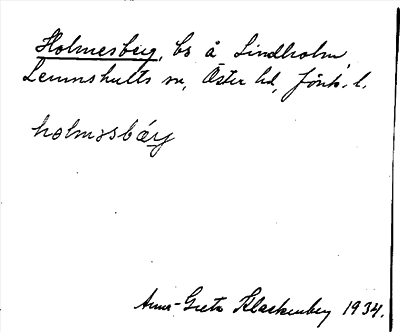 Holmesberg, bs å Lindholm
Lemnshults sn, Öster hd, Jönk. l.
holmasbárj
Anna-Greta Klackenberg 1934.